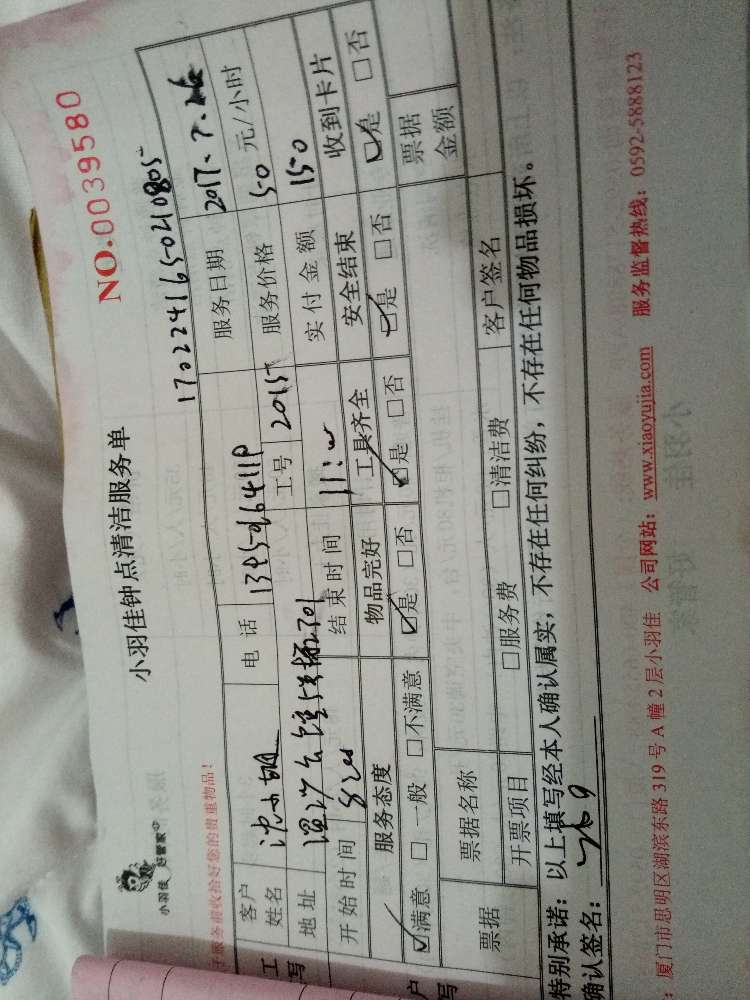 NO.0039580
小羽佳钟点清洁服务单
170224165040805
小羽佳 好管家
收拾好您的贵重物品！
客户姓名 电话 服务日期 2017.7.26
地址 工号 20155 服务价格 50 元/小时
开始时间 8:00 结束时间 11:00 实付金额 150
服务态度 物品完好 工具齐全 安全结束 收到卡片
☑满意 □一般 □不满意 ☑是 □否 ☑是 □否 ☑是 □否 ☑是 □否
票据 票据名称 票据金额
开票项目 □服务费 □清洁费 客户签名
特别承诺：以上填写经本人确认属实，不存在任何纠纷，不存在任何物品损坏。
确认签名：
：厦门市思明区湖滨东路 319 号 A 幢 2 层小羽佳 公司网站：www.xiaoyujia.com 服务监督热线：0592-5888123